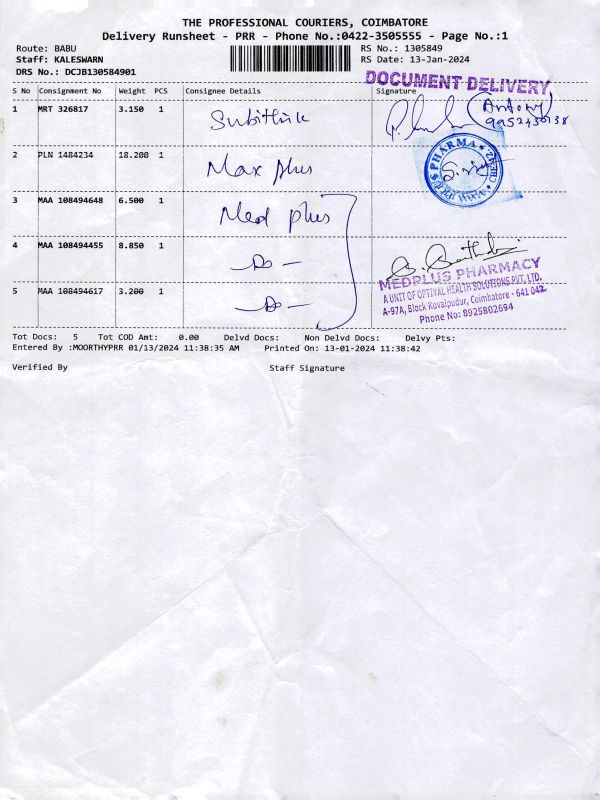 THE PROFESSIONAL COURIERS, COIMBATORE
Delivery Runsheet - PRR - Phone No.:0422-3505555 - Page No.:1
Route: BABU RS No.: 1305849
Staff: KALESWARN RS Date: 13-Jan-2024
DRS No.: DCJB130584901
DOCUMENT DELIVERY
S No Consignment No Weight PCS Consignee Details Signature
1 MRT 326817 3.150 1 (Antony)
2 PLN 1484234 18.200 1 Max plus
PHARMA
3 MAA 108494648 6.500 1 Med plus
4 MAA 108494455 8.850 1 - Do -
5 MAA 108494617 3.200 1 - Do -
MEDPLUS PHARMACY
A UNIT OF OPTIVAL HEALTH SOLUTIONS PVT. LTD.
A-97A, Block Kovalpudur, Coimbatore - 641 042.
Phone No: 8925802694
Tot Docs: 5 Tot COD Amt: 0.00 Delvd Docs: Non Delvd Docs: Delvy Pts:
Entered By :MOORTHYPRR 01/13/2024 11:38:35 AM Printed On: 13-01-2024 11:38:42
Verified By Staff Signature